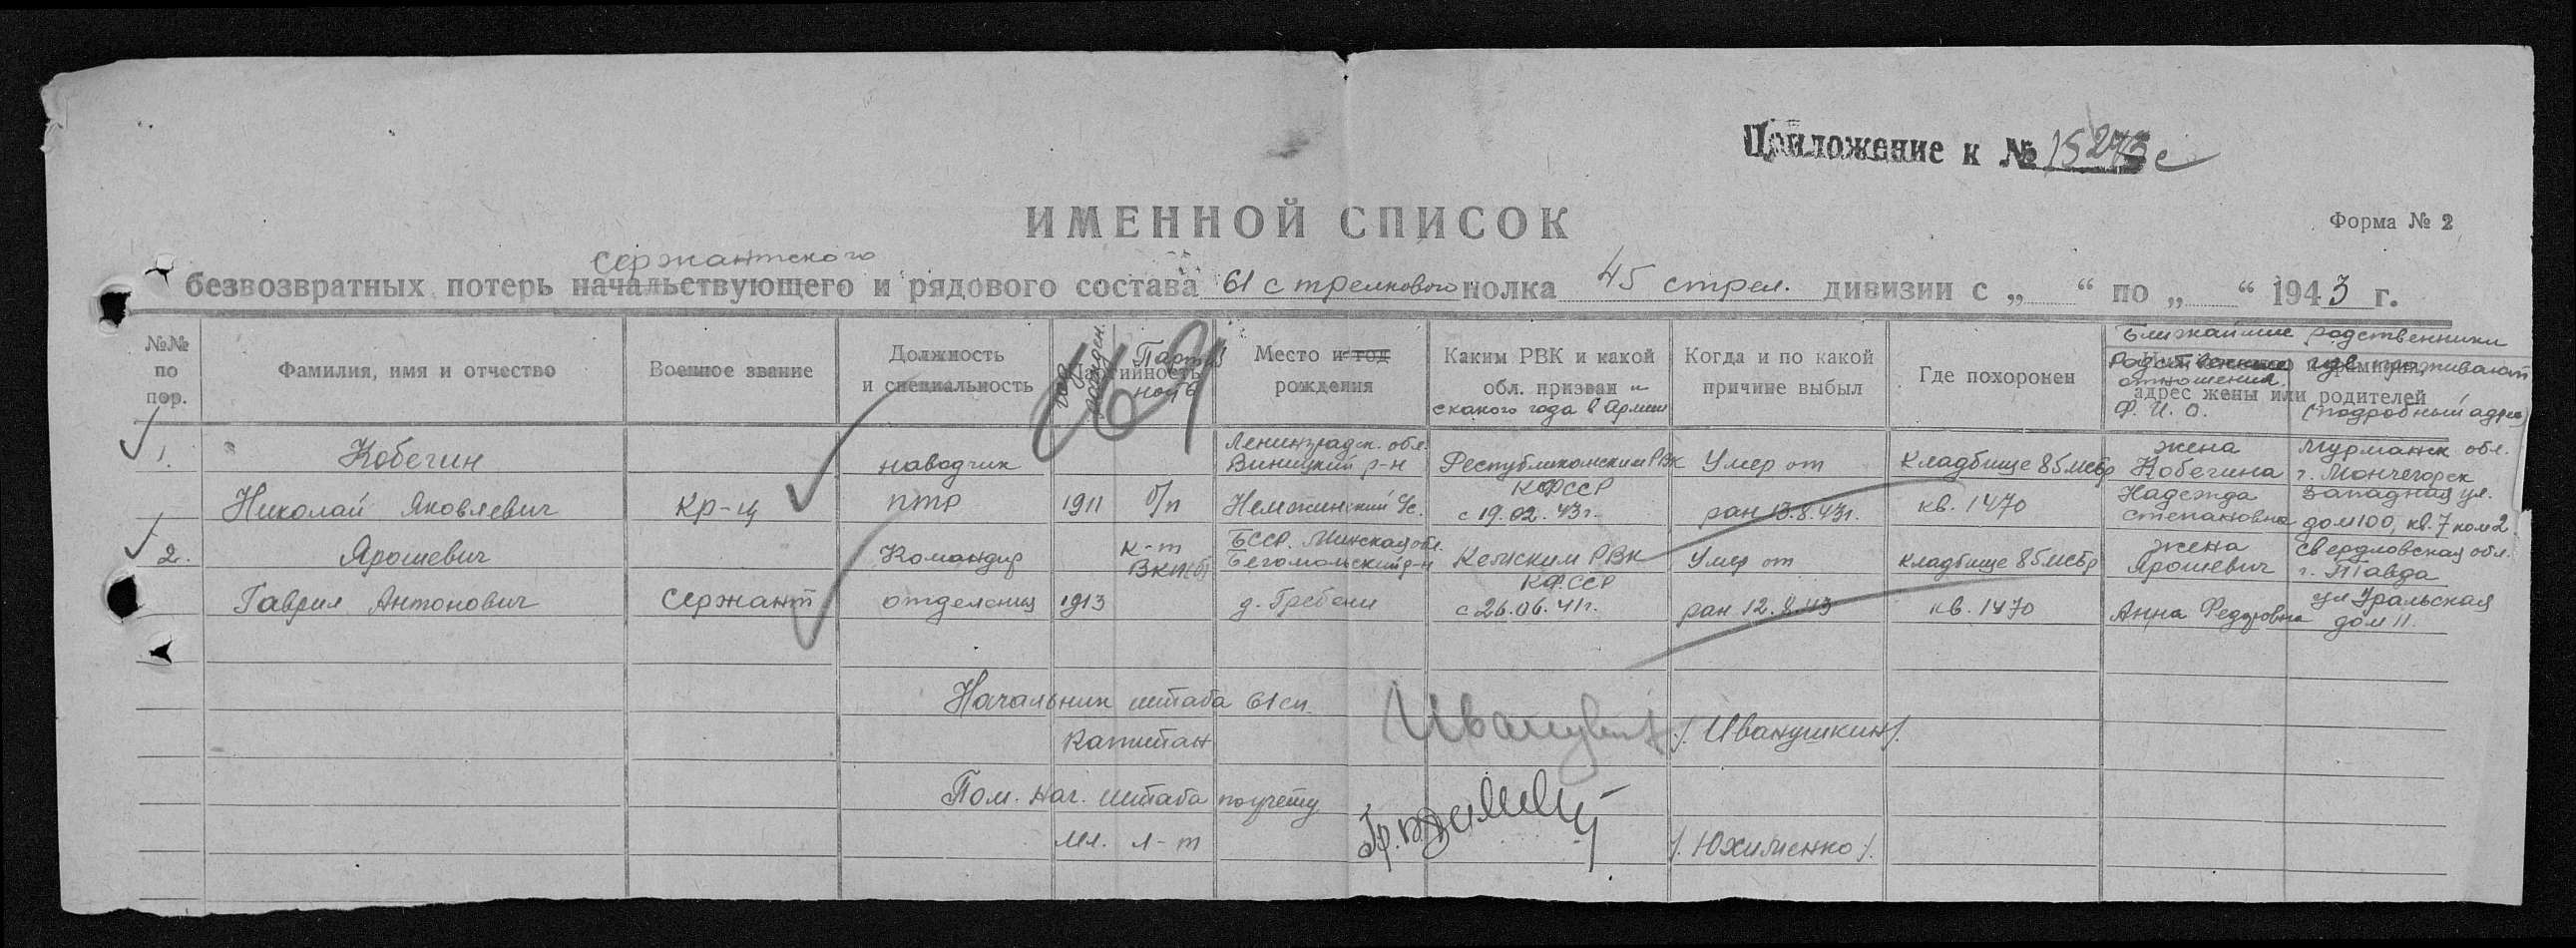 Приложение к № 15273с
ИМЕННОЙ СПИСОК
Форма № 2
сержантского
безвозвратных потерь начальствующего и рядового состава 61 стрелкового полка 45 стрел. дивизии с „ “ по „ “ 1943 г.
№№ по пор.
Фамилия, имя и отчество
Военное звание
Должность и специальность
год рожден.
Партийность
Партийность
Место и год рождения
Каким РВК и какой обл. призван и с какого года в Армии
Когда и по какой причине выбыл
Где похоронен
Ближайшие родственники
отношения
Ф. И. О.
где проживают
адрес жены или родителей
(подробный адрес)
1.
Кобегин
Николай Яковлевич
Кр-ц
наводчик
ПТР
1911
б/п
Ленинградск. обл.
Виницкий р-н
Немжинский с/с.
Республиканским РВК
КФССР
с 19.02.43г.
Умер от
ран 13.8.43г.
Кладбище 85 мсбр
кв. 1470
жена
Кобегина
Надежда
Степановна
Мурманск обл.
г. Мончегорск
Западная ул.
дом 100, кв. 7 ком 2
2.
Ярошевич
Гаврил Антонович
Сержант
Командир
отделения
1913
к-т
ВКП(б)
БССР. Минская обл.
Бегомольский р-н
д. Гребени
Кемским РВК
КФССР
с 26.06.41г.
Умер от
ран 12.8.43
кладбище 85 мсбр
кв. 1470
жена
Ярошевич
Анна Федоровна
Свердловская обл.
г. Тавда
ул Уральская
дом 11.
Начальник штаба 61 сп.
Капитан
/Иванушкин/.
Пом. нач. штаба по учету
мл. л-т
/Юхименко/.